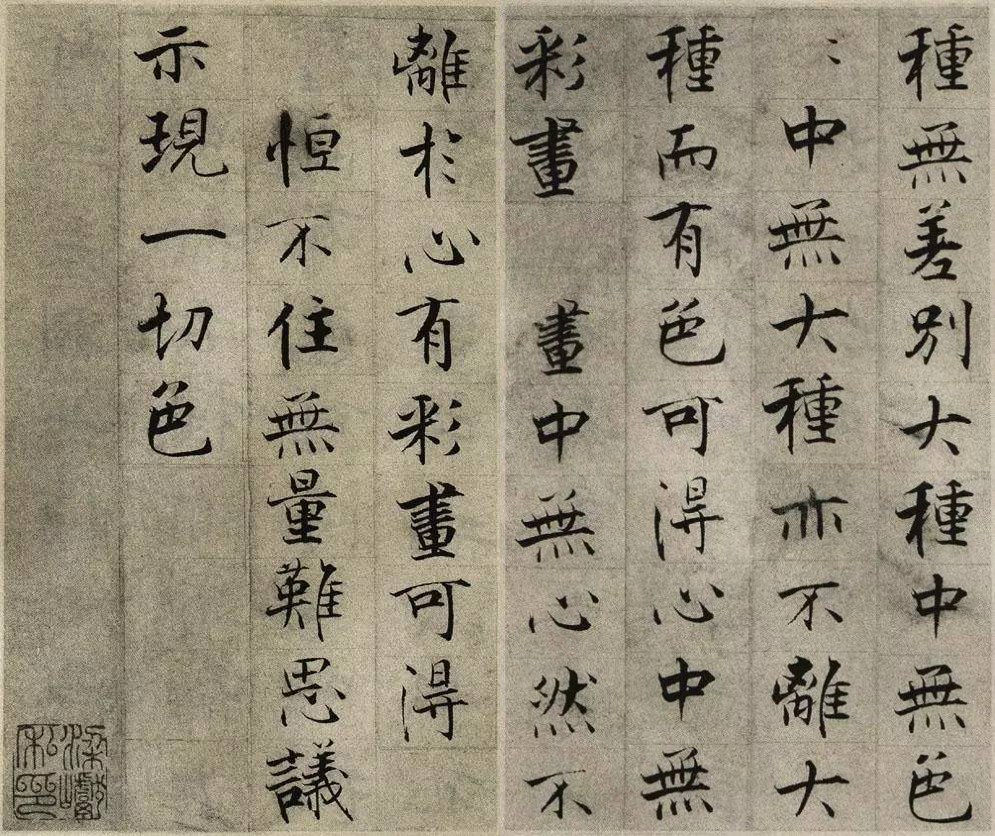 種無差別大種中無色
〻中無大種亦不離大
種而有色可得心中無
彩畫　畫中無心然不
離於心有彩畫可得
恒不住無量難思議
示現一切色
梁巘私印